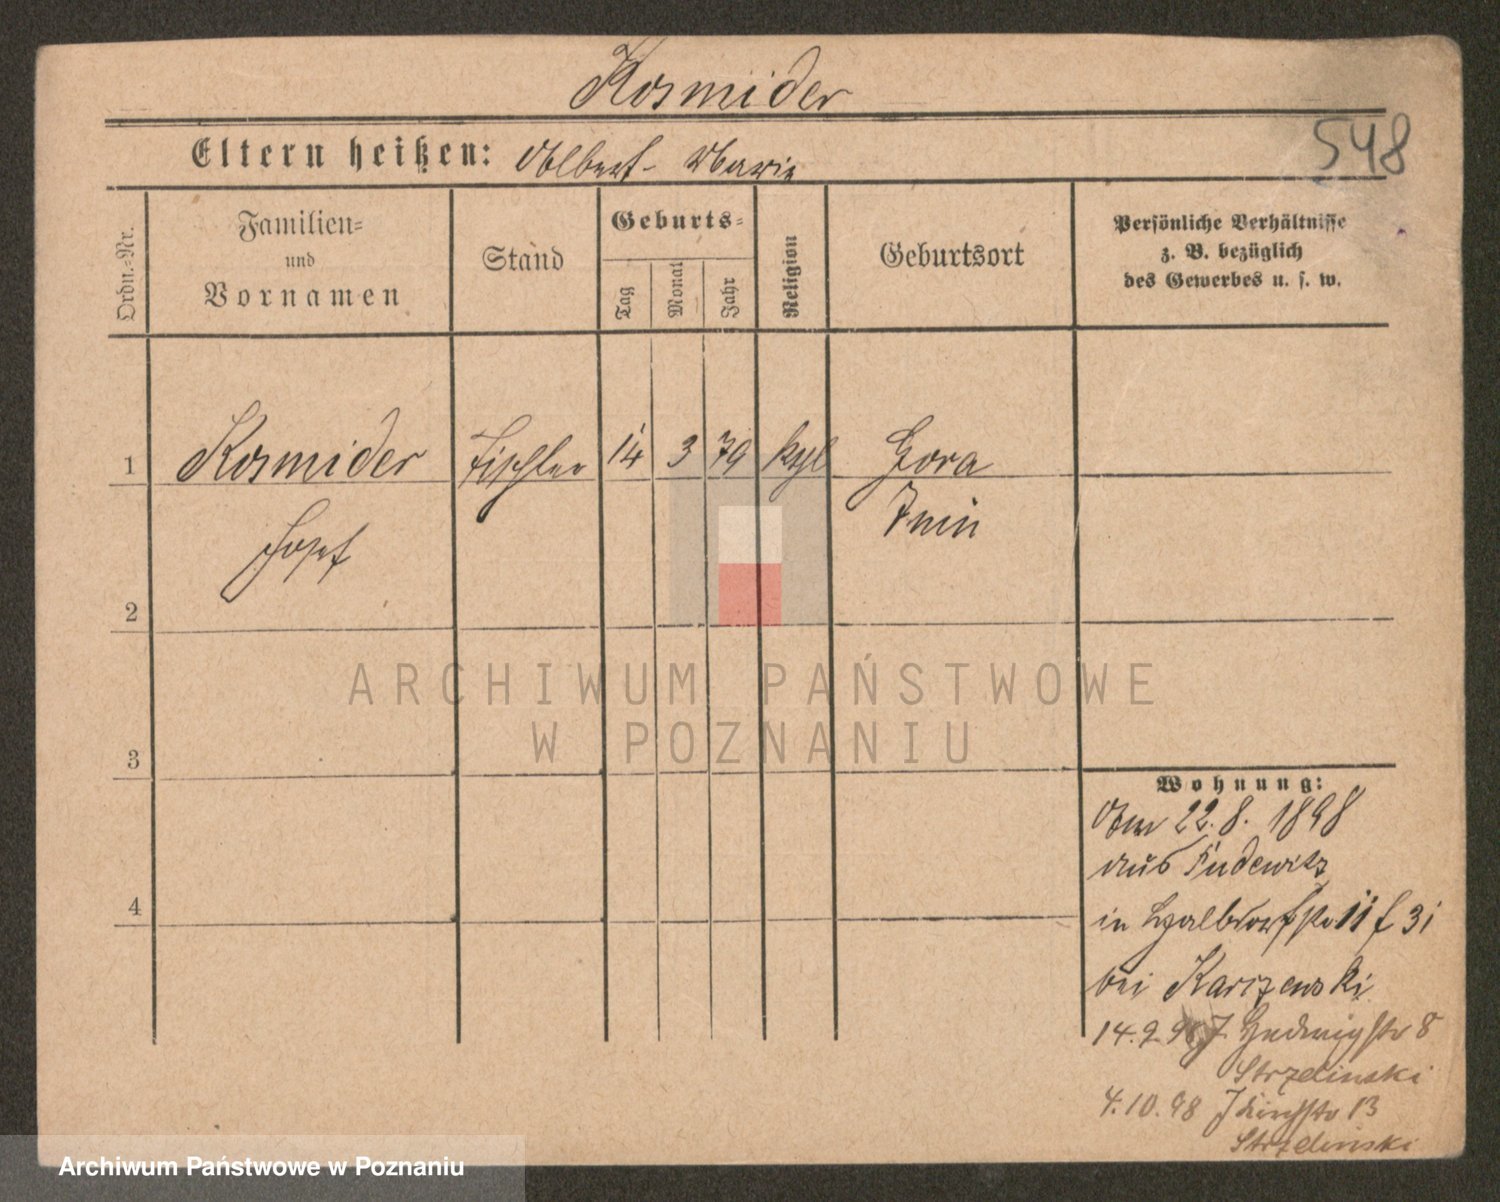 Kosmider
548
Eltern heißen: Albert - Marie
Ordn.-Nr.
Familien-
und
Vornamen
Stand
Geburts-
Tag
Monat
Jahr
Religion
Geburtsort
Persönliche Verhältnisse
z. B. bezüglich
des Gewerbes u. s. w.
1
Kosmider
Tischler
14
3
79
kath
Gora
Josef
Znin
2
3
4
Wohnung:
Am 22.8. 1898
aus Pudewitz
in Halbdorfstr 11
bei Karczewski
14.9.98 J. Hedwigstr 8
Strzelinski
4.10.98 J Kirchstr 13
Strzelinski
ARCHIWUM PAŃSTWOWE
W POZNANIU
Archiwum Państwowe w Poznaniu